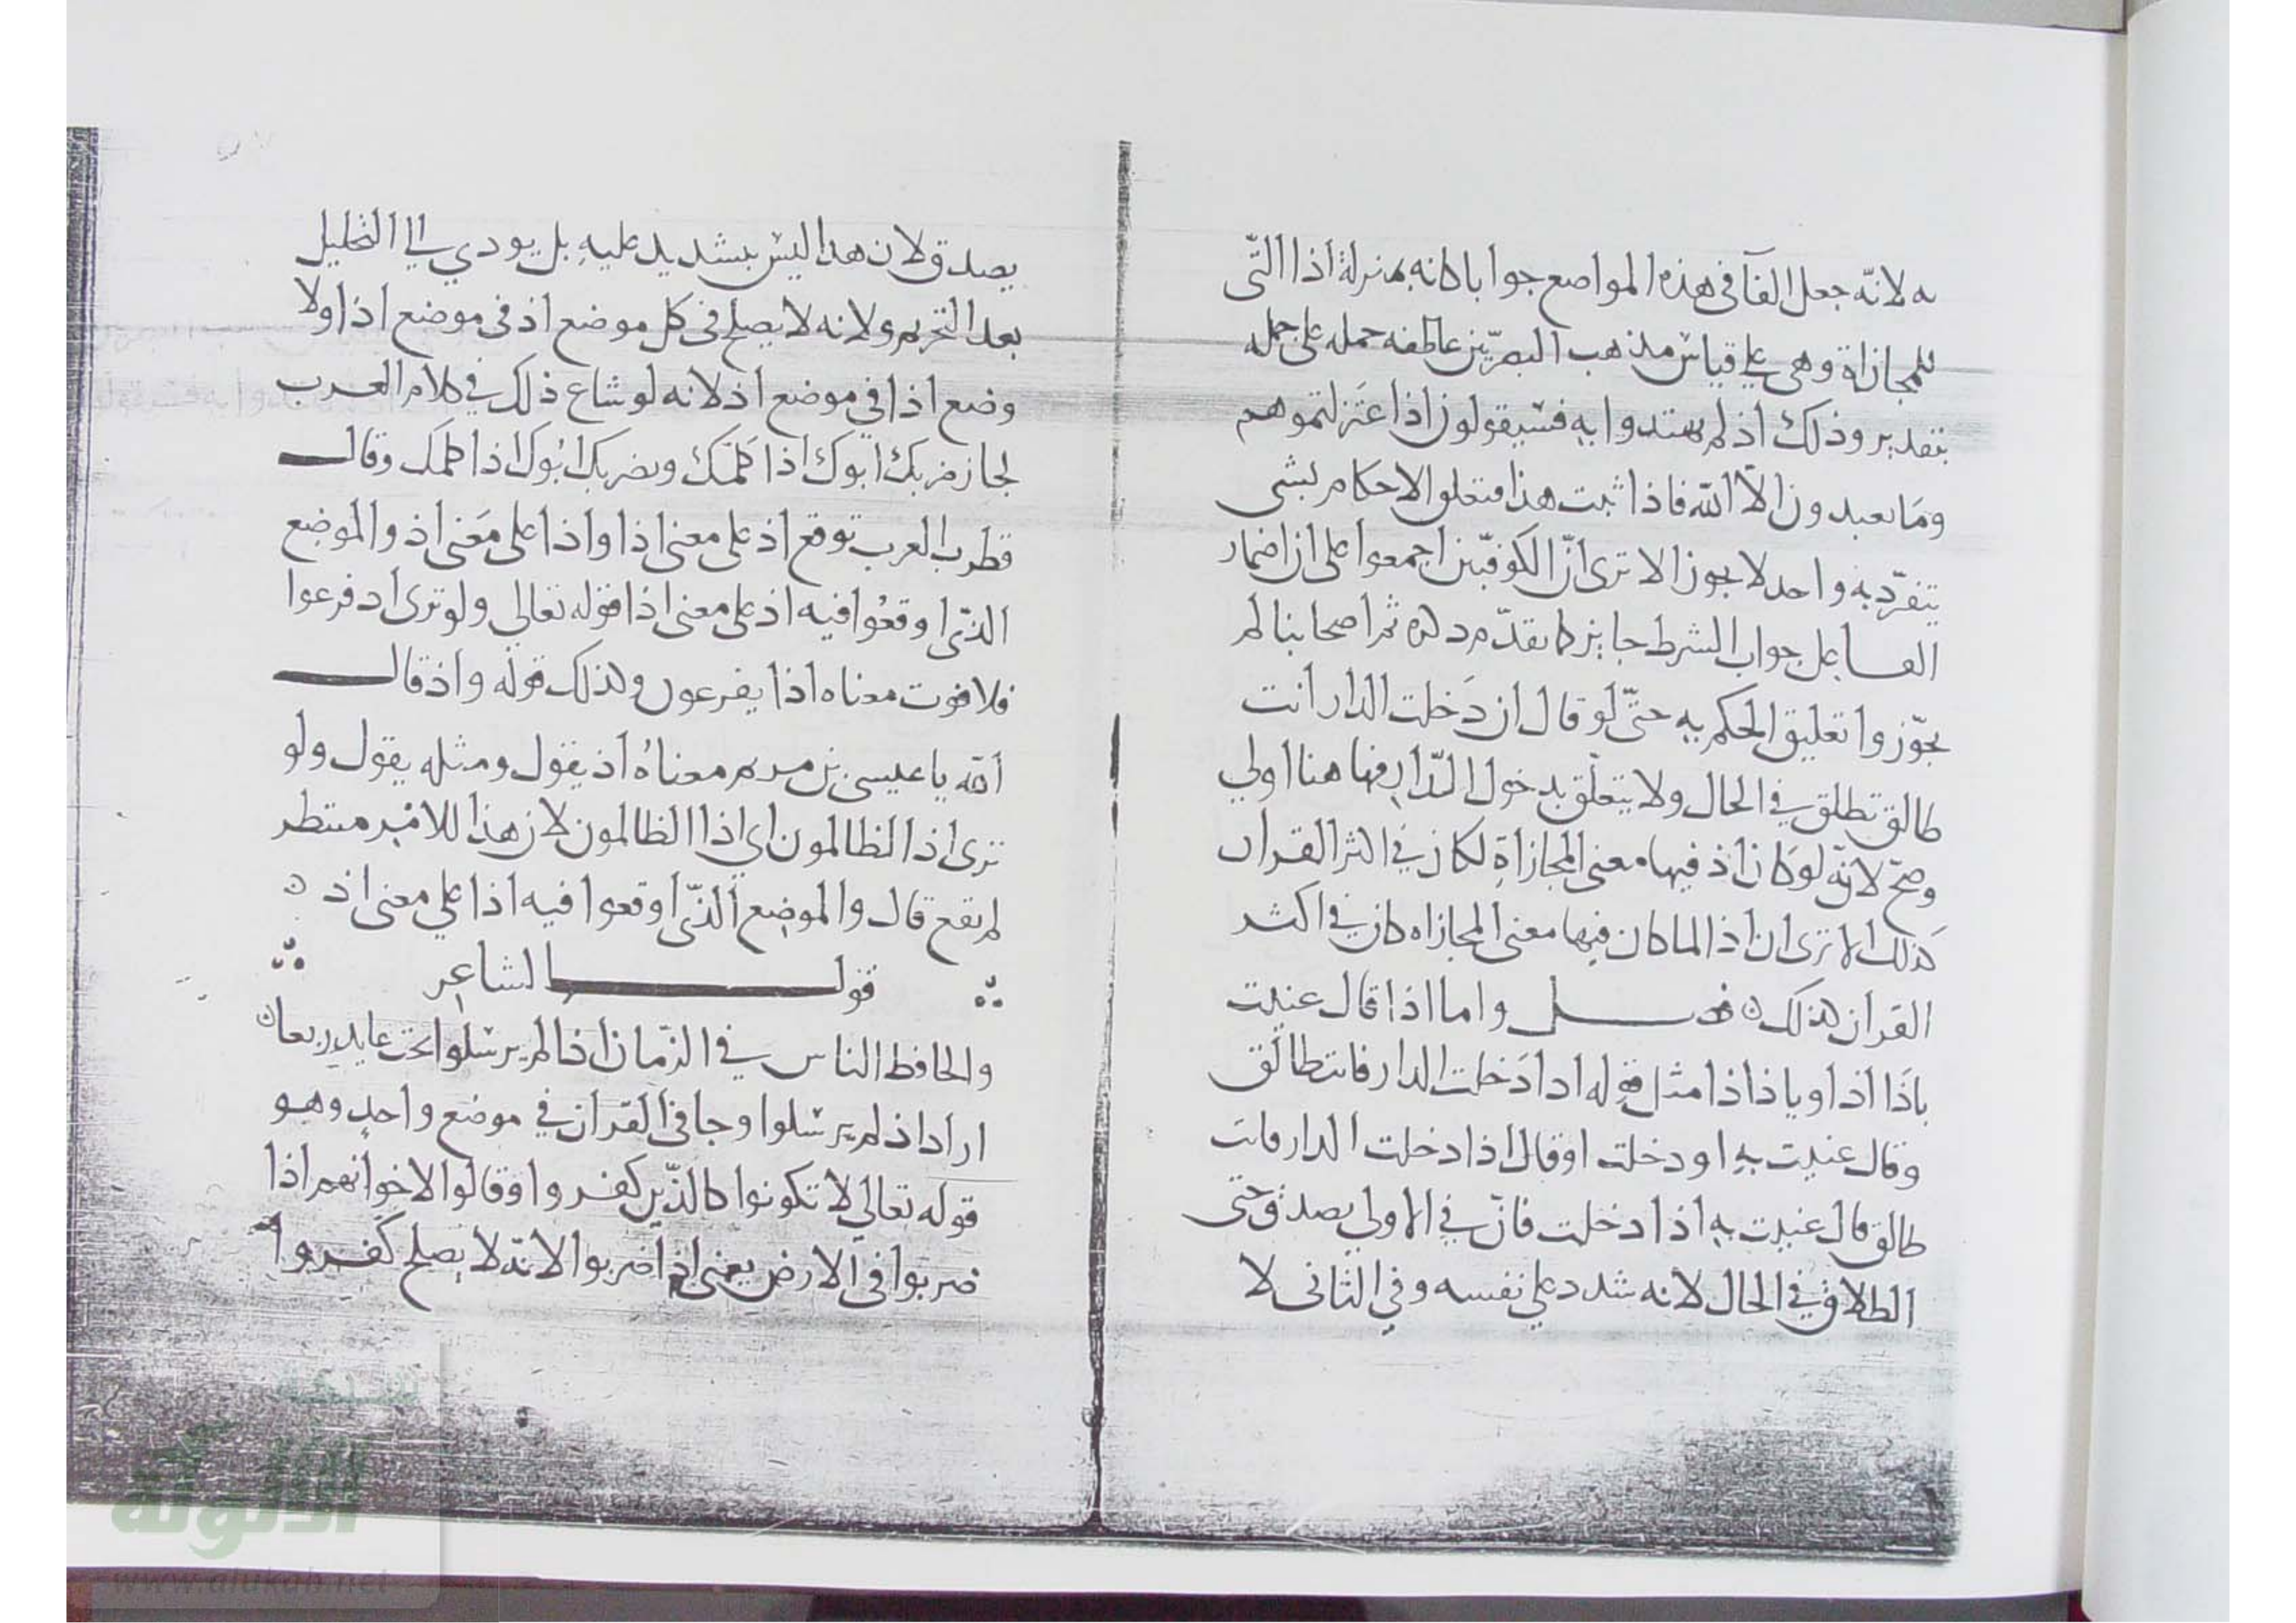 به لانّه جعل الفآ في هذه المواضع جوابا كانه بمنزلة اذا التّى
للمجازاة وهى على قياس مذهب البصريّين عاطفه جمله على جمله
بتقدير وذلك اذ لم يهتدوا به فسيقولون اذا عتزلتموهم
وما يعبدون الّا الله فاذا ثبت هذا فتعلق الاحكام بشى
يتفرّد به واحد لا يجوز الا ترى انّ الكوفيّين اجمعوا على ان اضمار
الفا على جواب الشرط جايز كما تقدّم ذكره ثم اصحابنا لم
يجوّزوا تعليق الحكم به حتّى لو قال ان دَخلت الدار انت
طالق تطلق في الحال ولا يتعلّق بدخول الدّار فها هنا اولى
وصح لانّه لو كان اذ فيها معنى المجازاة لكان في اكثر القران
كذلك الا ترى ان اذا لما كان فيها معنى المجازاه كان في اكثر
القران كذلك ن فصل واما اذا قال عنيت
باذا اذ او ياذ اذا مثل قوله اذا دَخلت الدار فانت طالق
وقال عنيت به اذ دخلت او قال اذا دخلت الدار فانت
طالق قال عنيت به اذا دخلت فانّ في الاولى يصدق حتى
الطلاق في الحال لانه شدد على نفسه وفي الثانى لا
يصدق لان هذا ليس بتشديد عليه بل يودي الى التحليل
بعد التحريم ولانه لا يصلح فى كل موضع اذ فى موضع اذا ولا
وضع اذا في موضع اذ لانه لو شاع ذلك في كلام العرب
لجاز ضربك ابوك اذا كلمَك ويضربك ابُوك اذا كلمك وقال
قطرب العرب توقع اذ على معنى اذا واذا على مَعنى اذ والموضع
الذّى اوقعُوا فيه اذ على معنى اذا قوله تعالى ولو ترى اذ فرعوا
فلا فوت معناه اذا يفرعون وكذلك قوله واذ قال
الله يا عيسى بن مريم معناهُ اذ يقول ومثله يقول ولو
ترى اذ الظالمون اي اذا الظالمون لان هذا للامْر منتظر
لم يقع قال والموضع الذّى اوقعوا فيه اذا على معنى اذ ن
قول الشاعر
والحافظ الناس في الزمان اذا لم يرسلوا تحت عايد ربعا ن
اراد اذ لم يرسلوا وجا في القران في موضع واحد وهو
قوله تعالى لا تكونوا كالذّين كفروا وقالوا لاخوانهم اذا
ضربوا فى الارض يعنى اذ اضربوا لانّه لا يصلح كفروا
شبكة
الألوكة
www.alukah.net